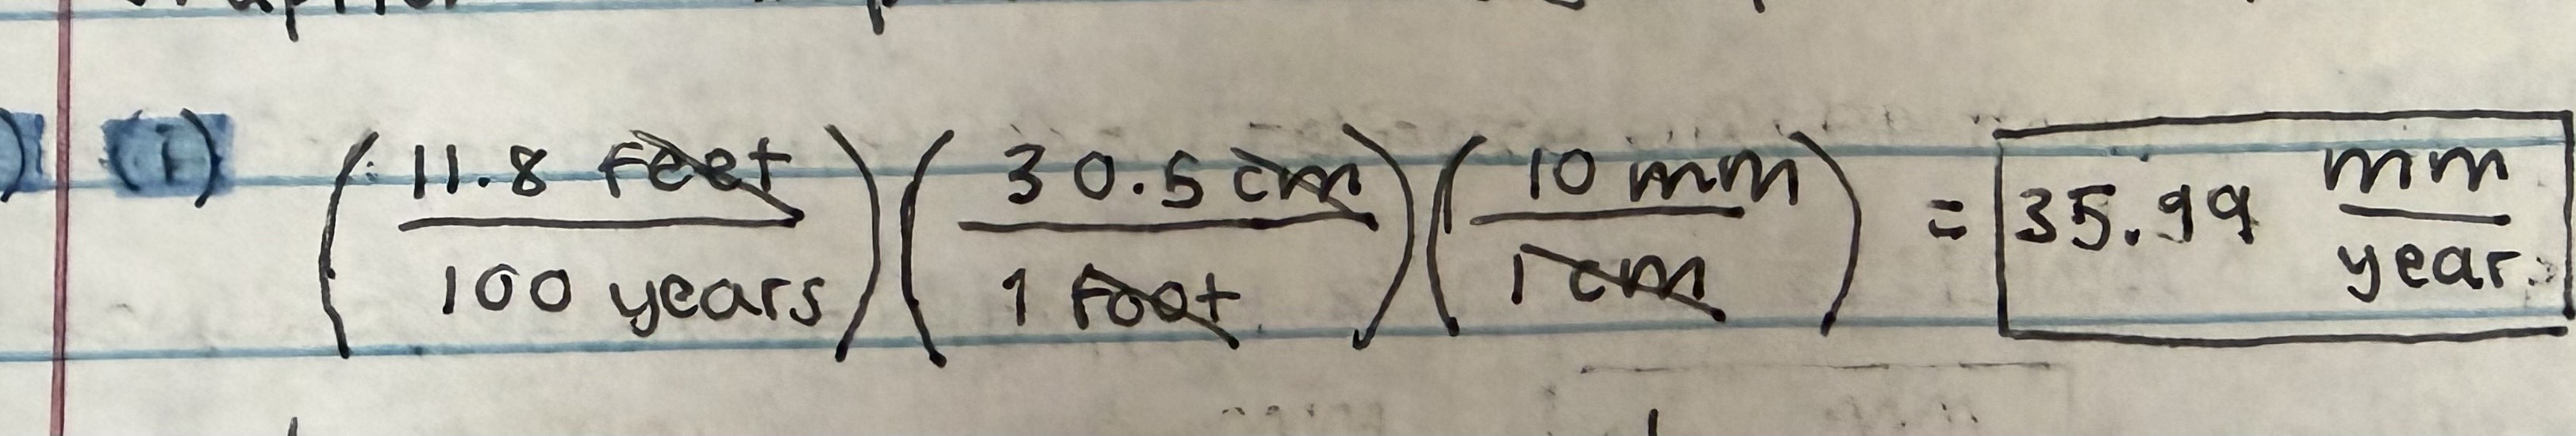 (i) (11.8 feet / 100 years)(30.5 cm / 1 foot)(10 mm / 1 cm) = 35.99 mm / year